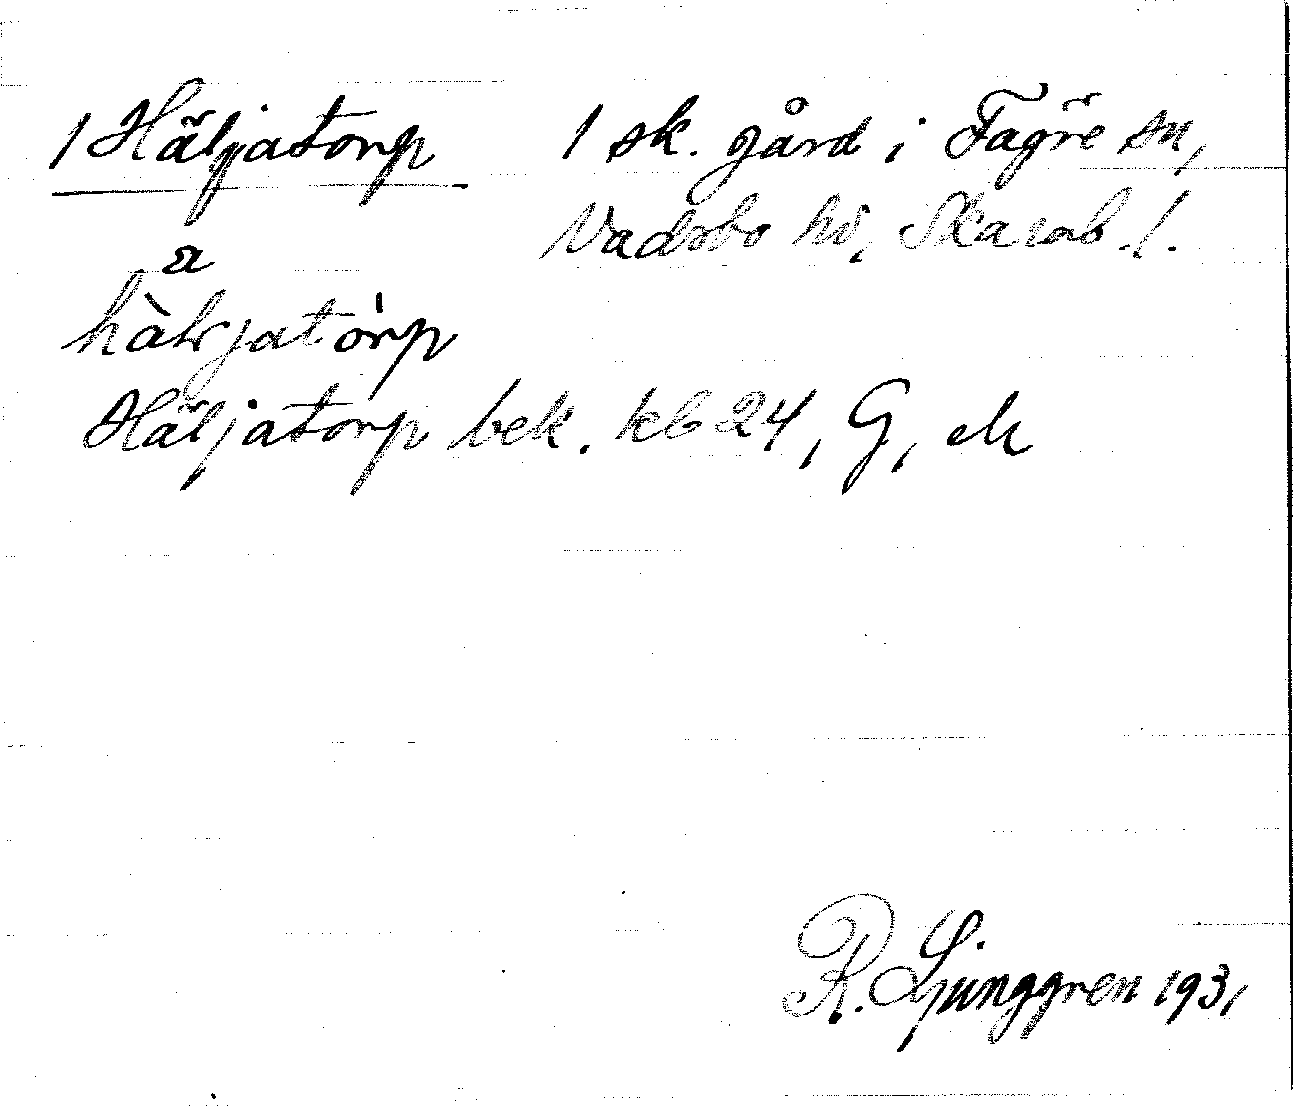 1 Häljatorp 1 sk. gård i Fägre sn,
Vadsbo hd, Skarab. l.
a
hàljatòrp
Häljatorp bek. kb 24, G, ek
R. Ljunggren 1931